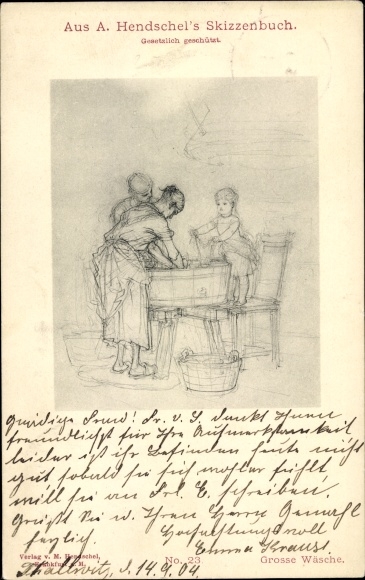 Aus A. Hendschel's Skizzenbuch.
Gesetzlich geschützt.
Gnädige Frau! Fr. v. S. dankt Ihnen
freundlichst für Ihre Aufmerksamkeit
leider ist ihr Befinden heute nicht
gut sobald sie sich wohler fühlt
will sie an Frl. E. schreiben.
Grüßt Sie u. Ihren Herrn Gemahl
Hochachtungsvoll
Emma Krauss.
Verlag v. M. Hendschel,
Frankfurt a. M.
No. 23.
Grosse Wäsche.
Thallwitz, d. 14. 9. 04